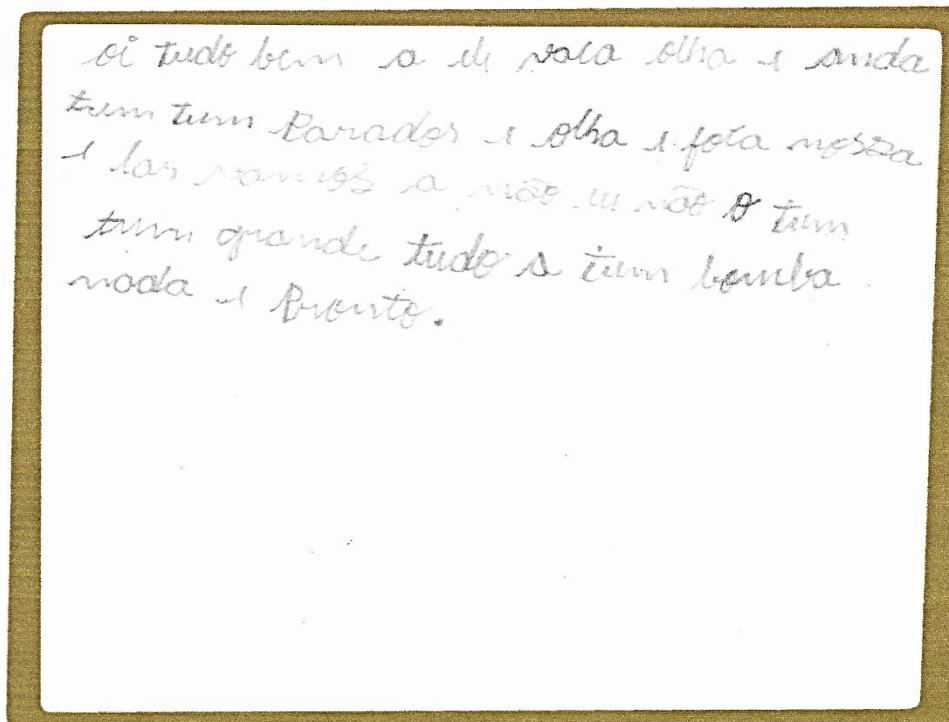 oi tudo bem a eu vaca olha e anda
tem tem Parados e olha e foca nossa
e las vamos a não eu não o tem
tem grande tudo a tem bomba
nada e Pronto.